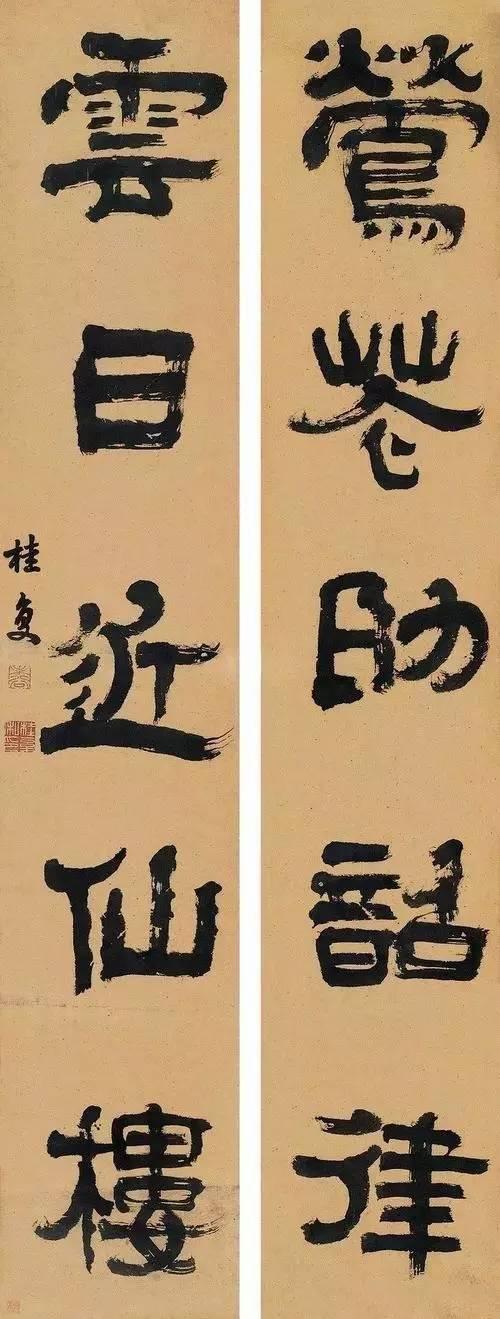 鶯花助韶律
雲日近仙樓
桂复